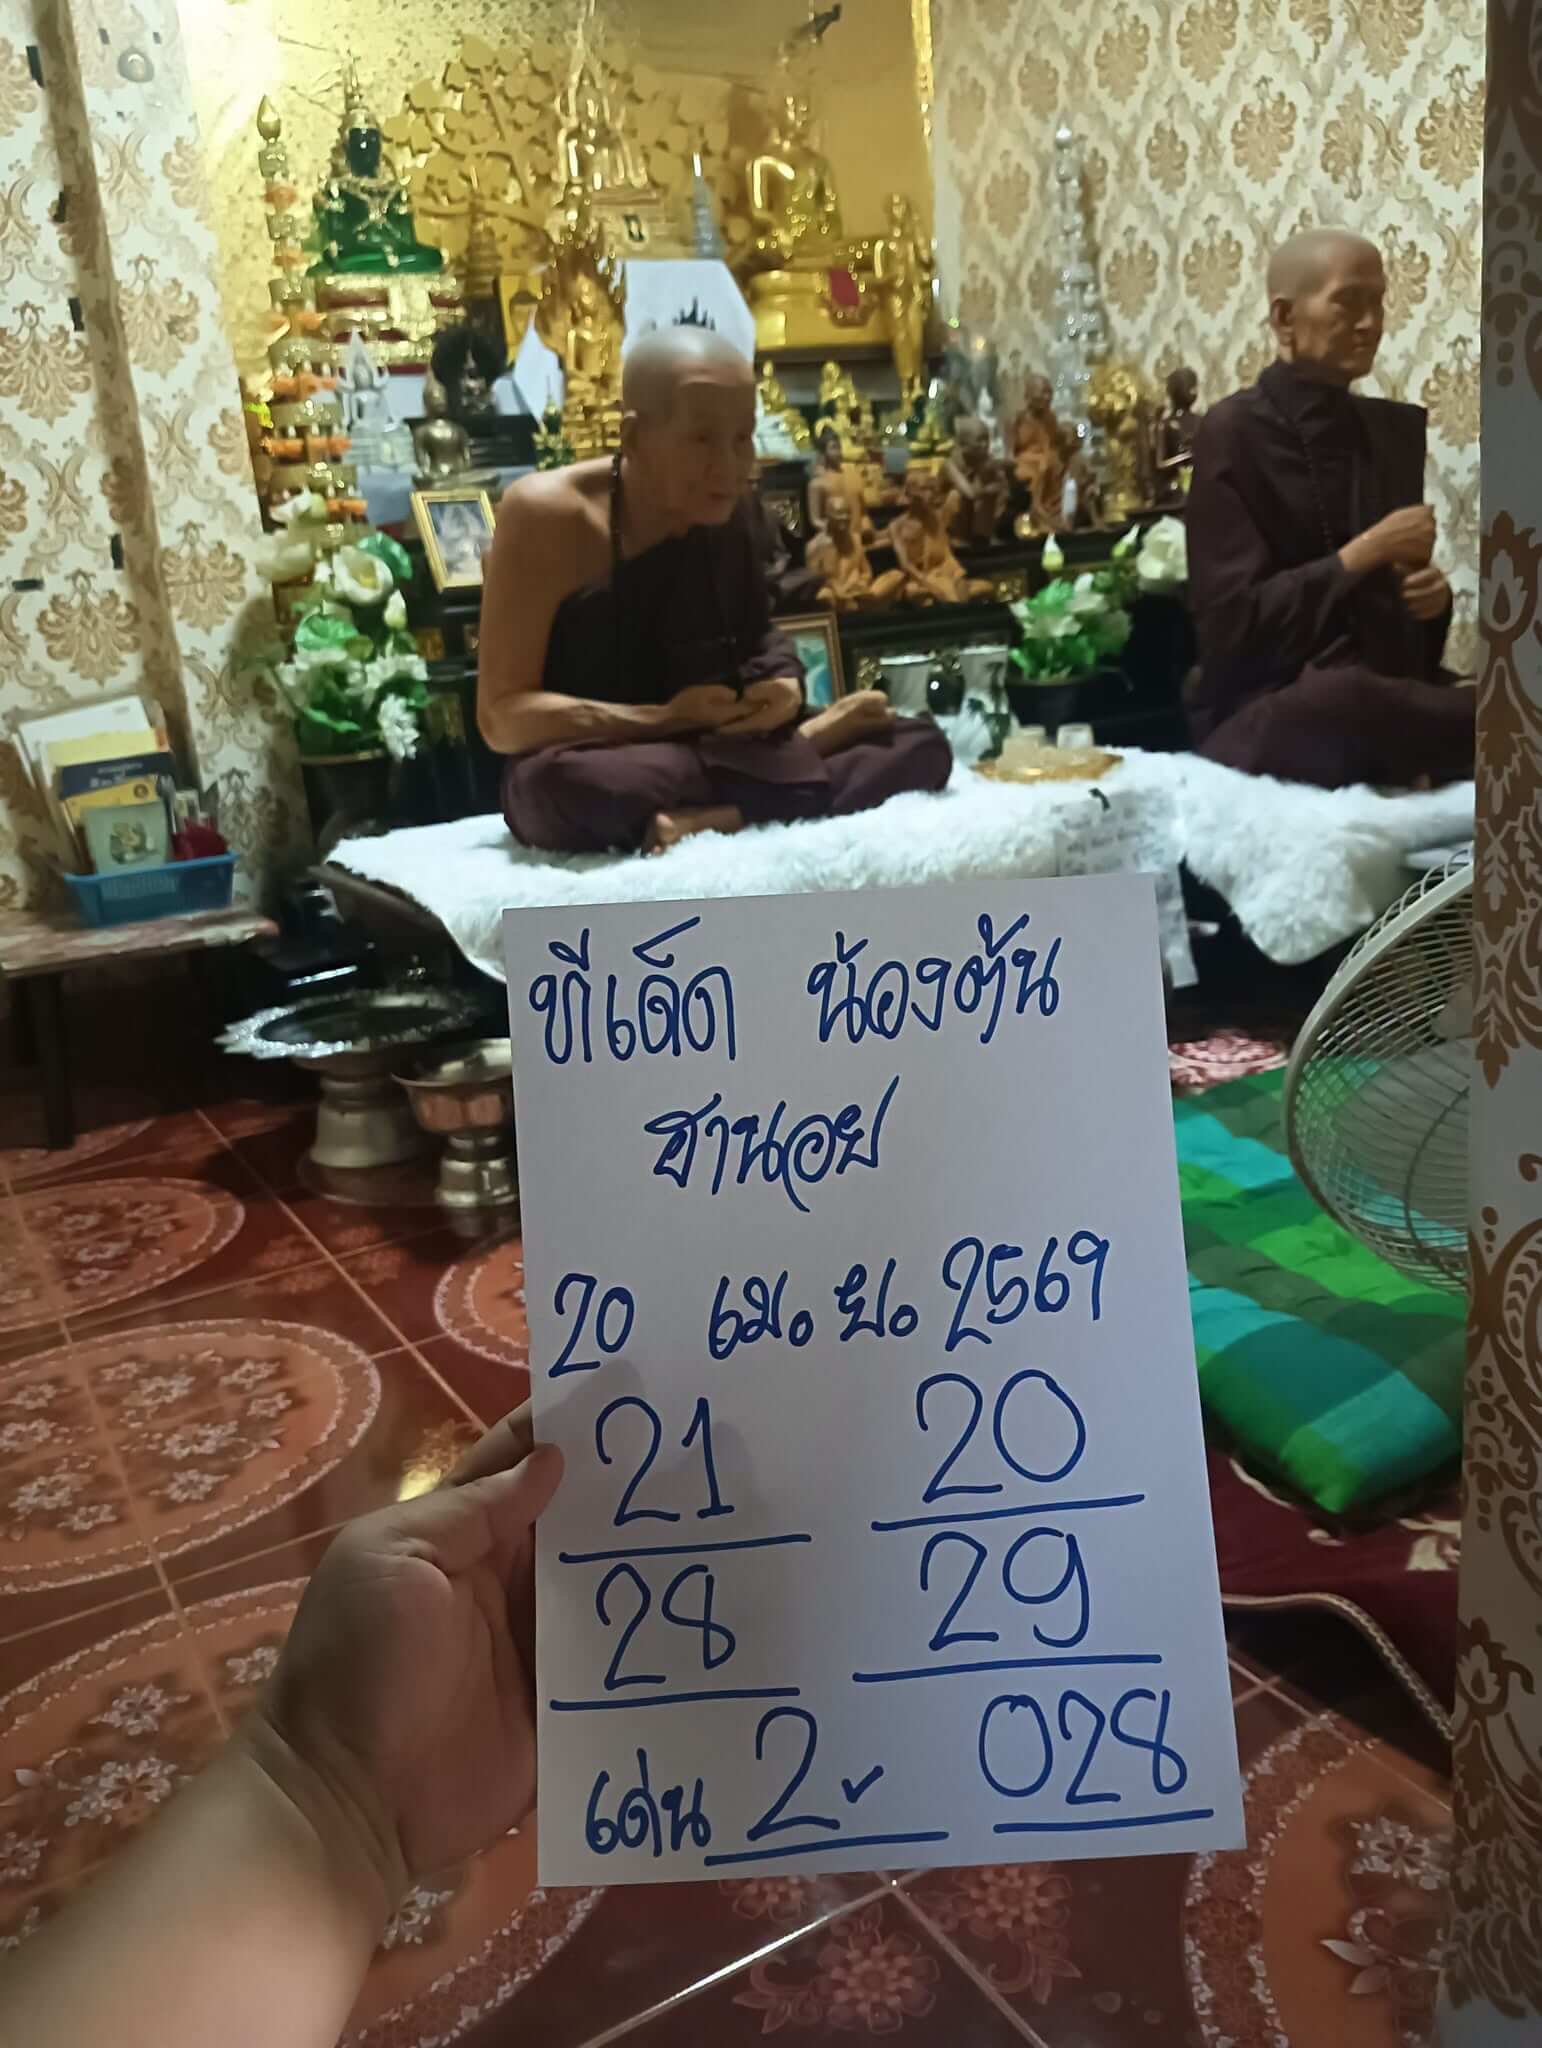 ทีเด็ด น้องต้น
ฮานอย
20 เม.ย. 2569
21 20
28 29
เด่น 2 028